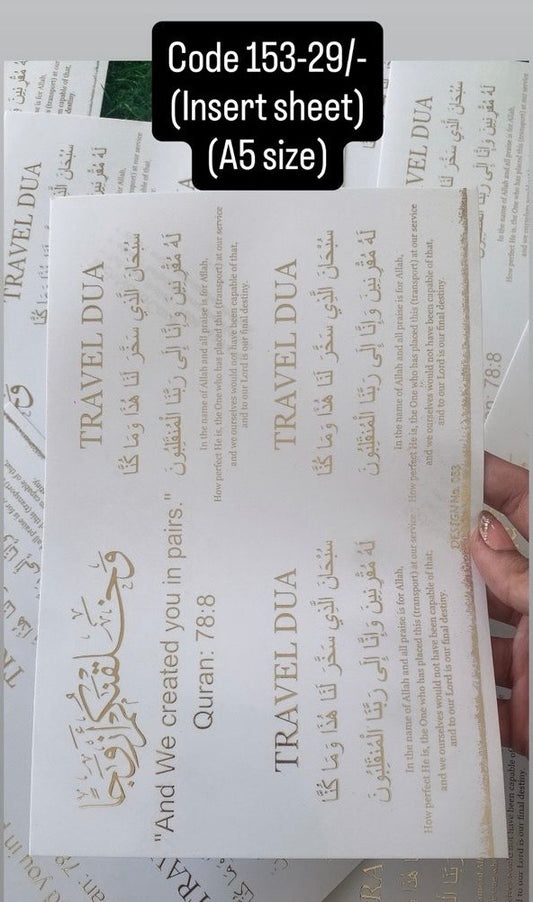 Code 153-29/-
(Insert sheet)
(A5 size)
وَخَلَقْنَاكُمْ أَزْوَاجًا
"And We created you in pairs."
Quran: 78:8
TRAVEL DUA
سُبْحَانَ الَّذِي سَخَّرَ لَنَا هَٰذَا وَمَا كُنَّا
لَهُ مُقْرِنِينَ وَإِنَّا إِلَى رَبِّنَا لَمُنْقَلِبُونَ
In the name of Allah and all praise is for Allah,
How perfect He is, the One who has placed this (transport) at our service
and we ourselves would not have been capable of that,
and to our Lord is our final destiny.
TRAVEL DUA
سُبْحَانَ الَّذِي سَخَّرَ لَنَا هَٰذَا وَمَا كُنَّا
لَهُ مُقْرِنِينَ وَإِنَّا إِلَى رَبِّنَا لَمُنْقَلِبُونَ
In the name of Allah and all praise is for Allah,
How perfect He is, the One who has placed this (transport) at our service
and we ourselves would not have been capable of that,
and to our Lord is our final destiny.
TRAVEL DUA
سُبْحَانَ الَّذِي سَخَّرَ لَنَا هَٰذَا وَمَا كُنَّا
لَهُ مُقْرِنِينَ وَإِنَّا إِلَى رَبِّنَا لَمُنْقَلِبُونَ
In the name of Allah and all praise is for Allah,
How perfect He is, the One who has placed this (transport) at our service
and we ourselves would not have been capable of that,
and to our Lord is our final destiny.
DESIGN No. 053
TRAVEL DUA